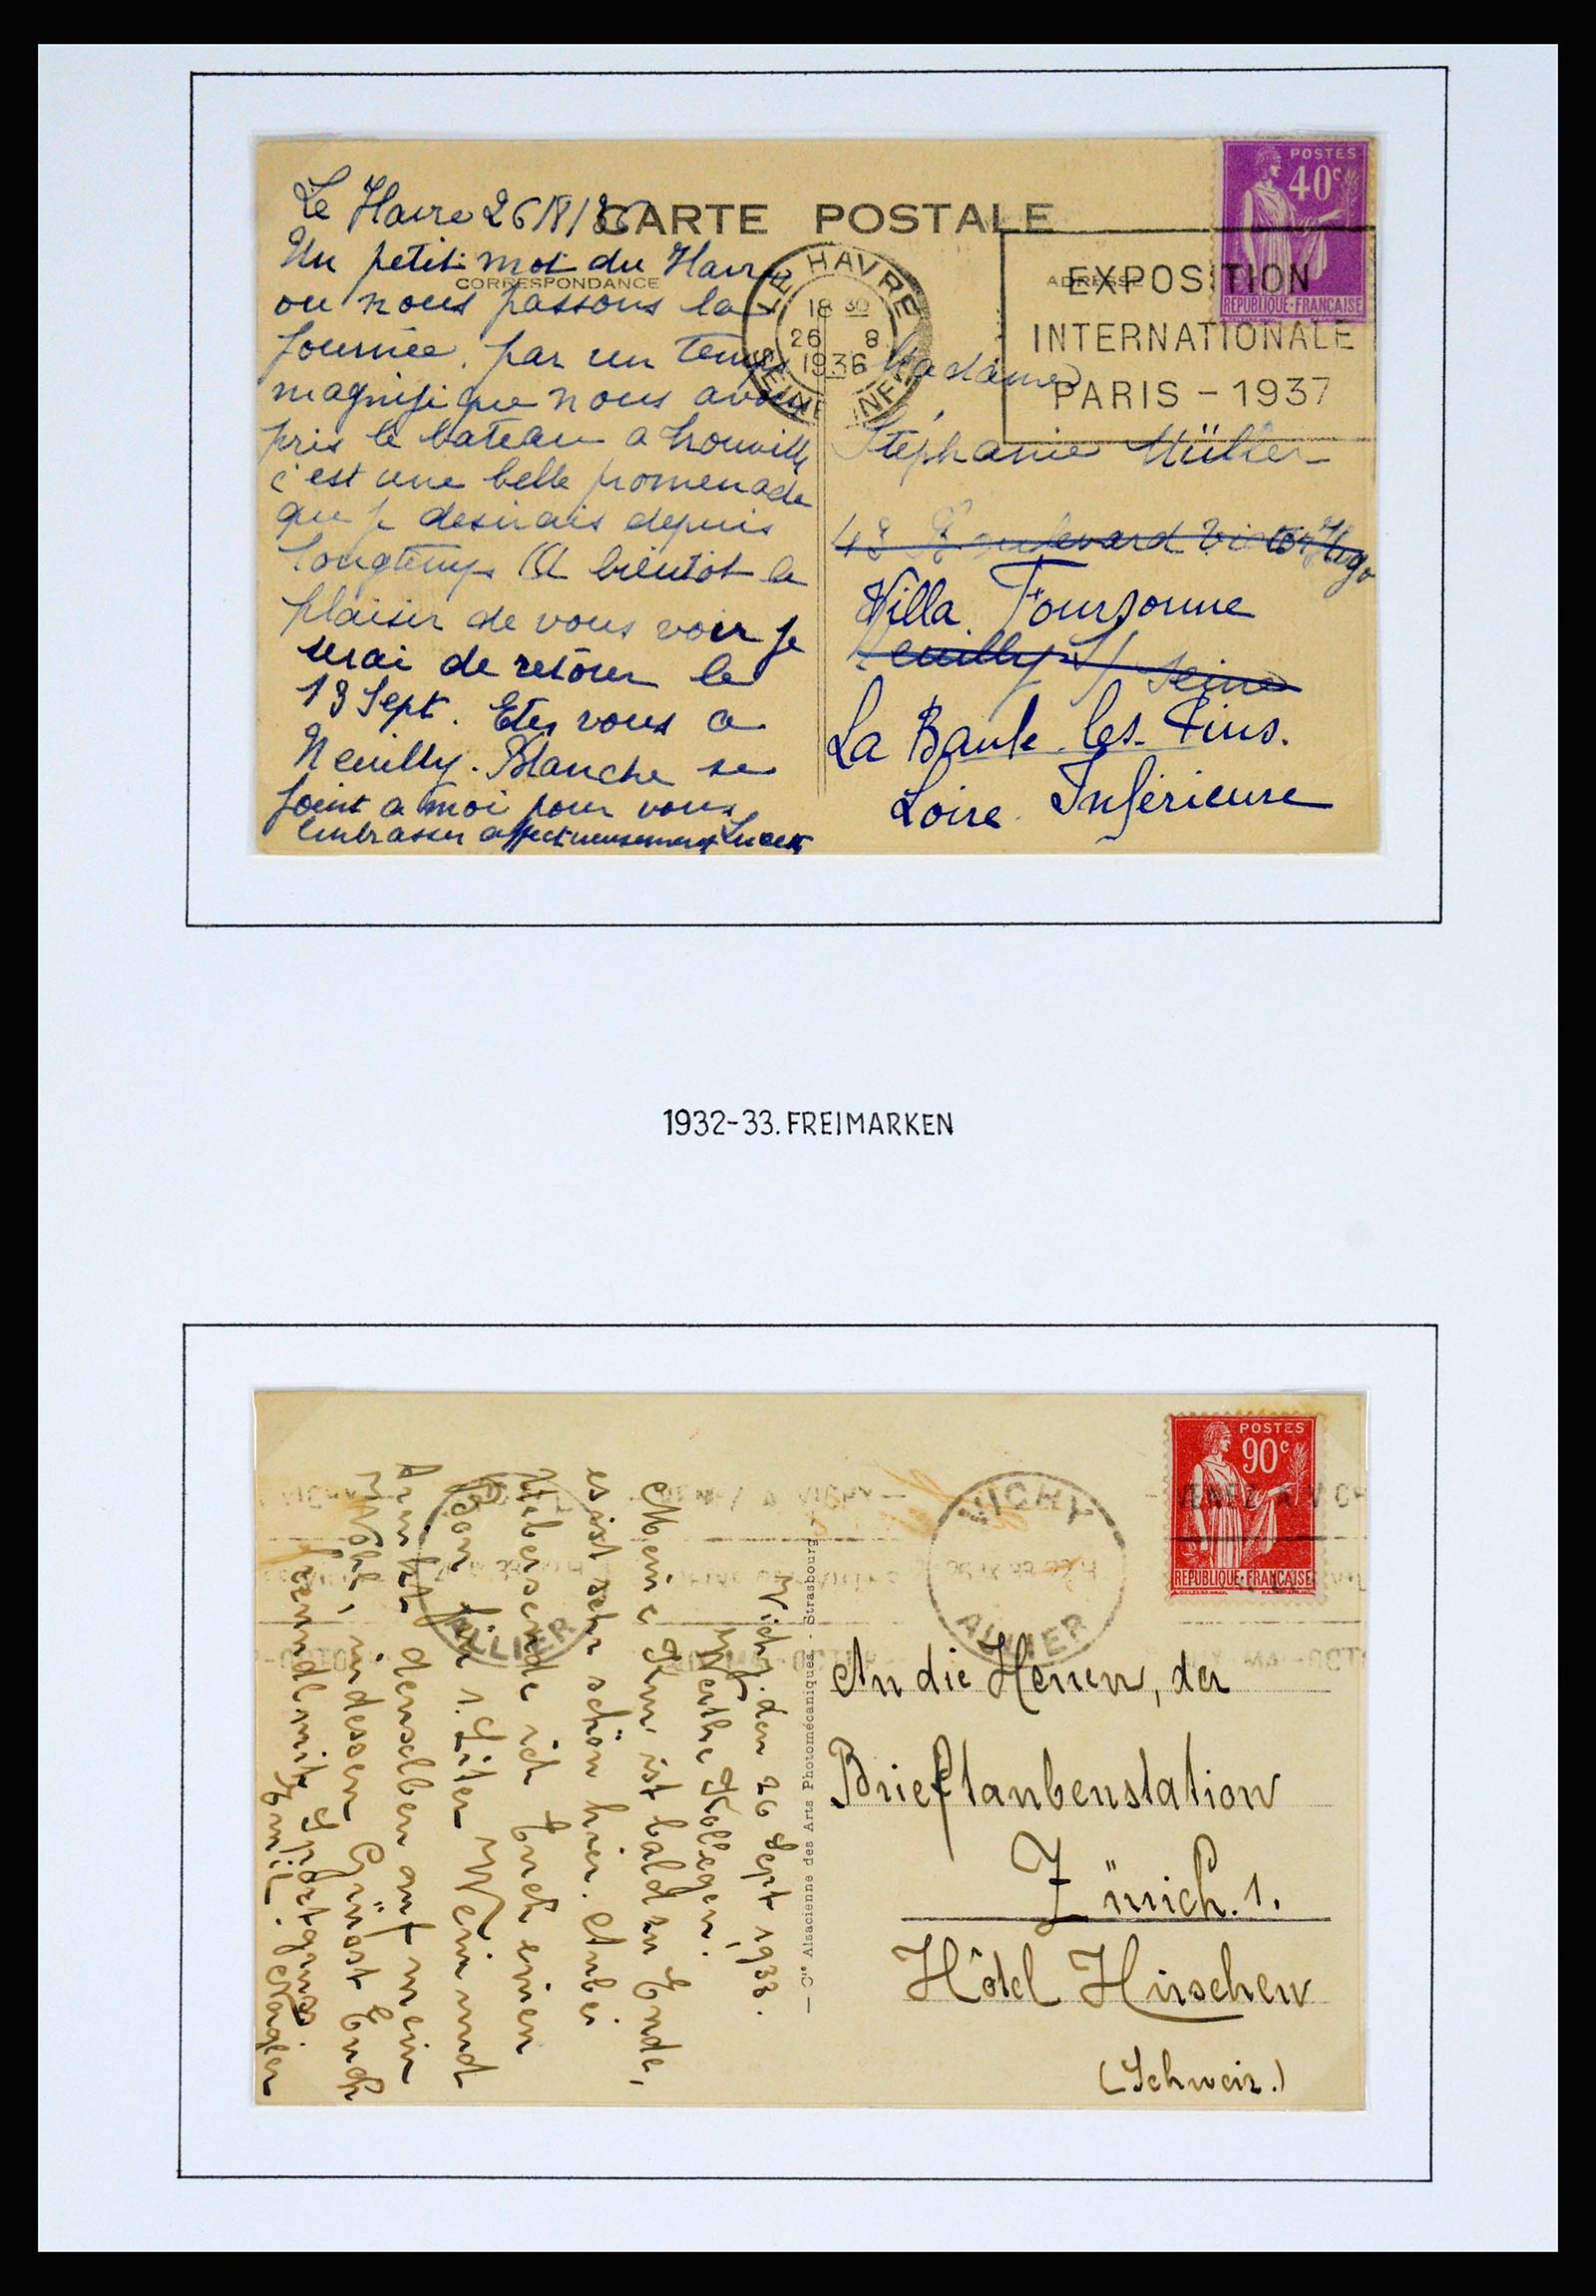 CARTE POSTALE
CORRESPONDANCE
ADRESSE
POSTES
40c
REPUBLIQUE-FRANÇAISE
LE HAVRE
18 30
26 8
1936
SEINE INFRE
EXPOSITION
INTERNATIONALE
PARIS - 1937
Le Havre 26/8/36
Un petit mot du Havre
ou nous passons la
journée. par un temps
magnifique nous avons
pris le bateau a Trouville
c'est une belle promenade
que je desirais depuis
longtemps A bientot le
plaisir de vous voir je
serai de retour le
13 Sept. Etes vous a
Neuilly. Blanche se
joint a moi pour vous
embrasser affectueusement
Madame
Stephanie Müller
48 Boulevard Victor Hugo
Villa
Neuilly S/ Seine
La Baule. les. Pins.
Loire Inférieure
1932-33. FREIMARKEN
POSTES
90c
REPUBLIQUE-FRANÇAISE
VICHY
ALLIER
ALLIER
— Cie Alsacienne des Arts Photomécaniques. - Strasbourg
Vichy. den 26 Sept 1933.
Werthe Kollegen!
Meine Kur ist bald zu Ende,
es ist sehr schön hier. Anbei
Übersende ich Euch einen
Bon für 1. Liter Wein und
trinkt denselben auf mein
Wohl, indessen Grüsst Euch
freundl mit Sportgruss.
Emil.
An die Herren, der
Brieftaubenstation
Zürich. 1.
Hôtel Hirschen
(Schweiz.)